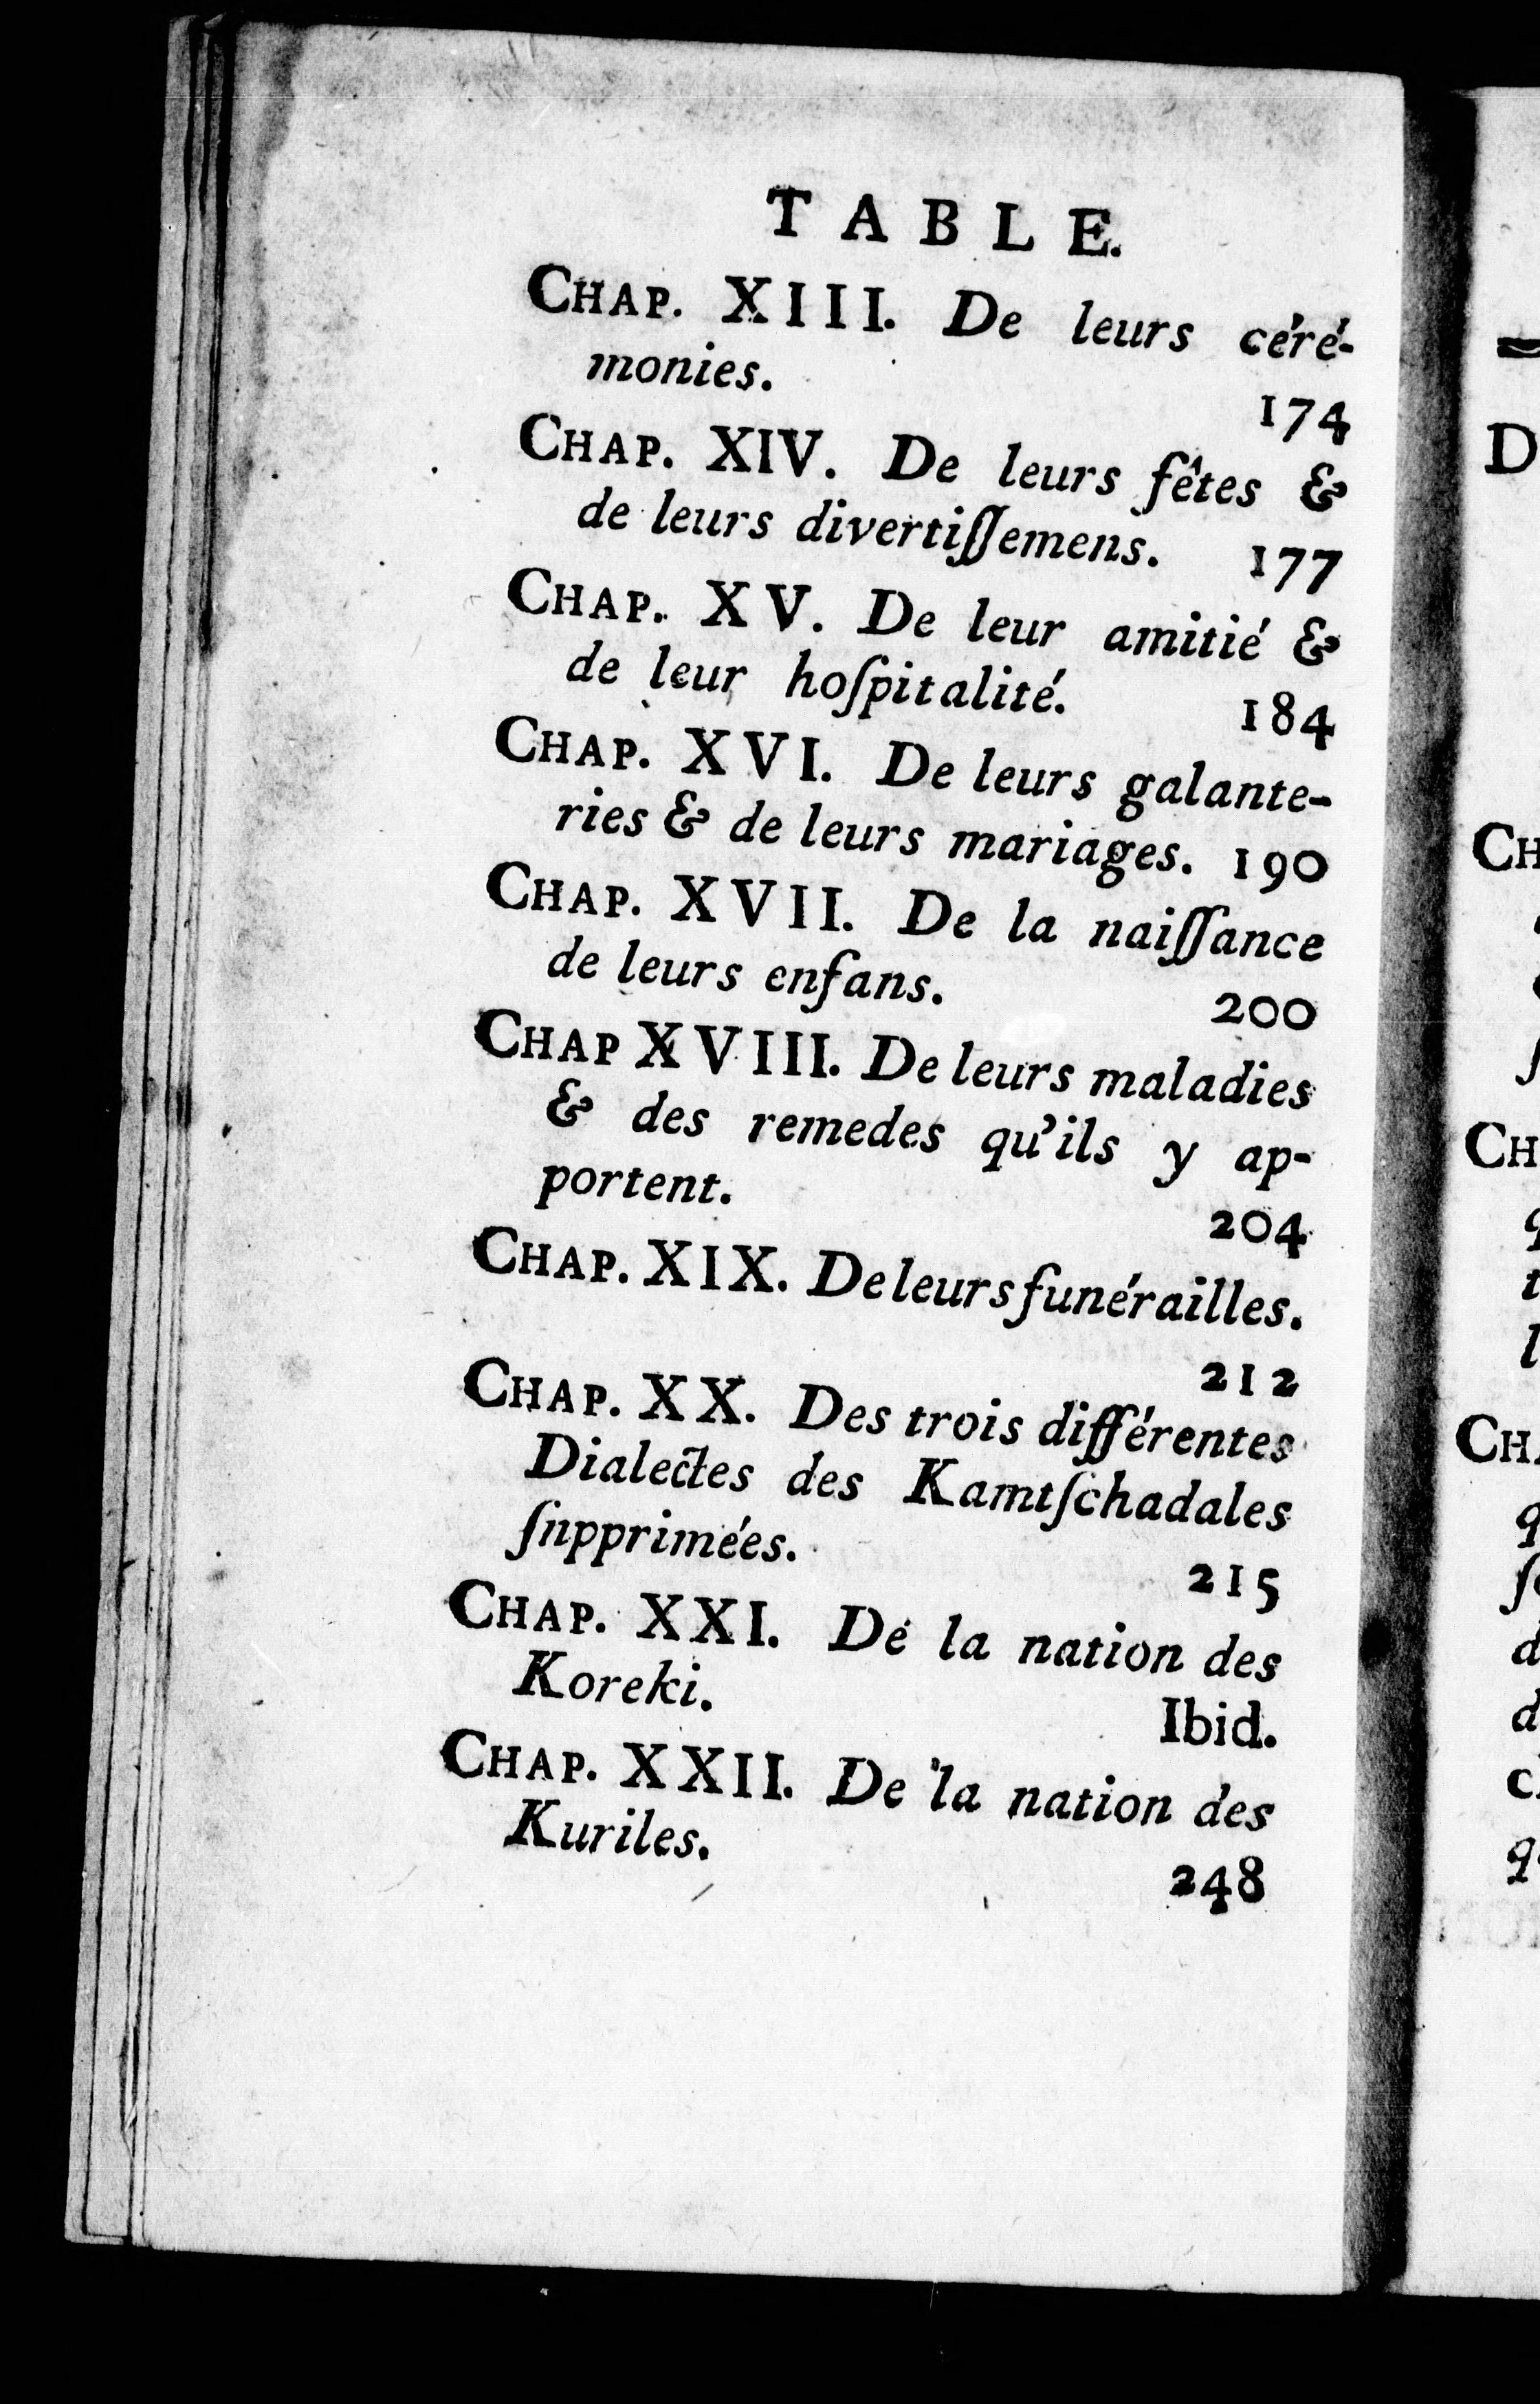 TABLE.
CHAP. XIII. De leurs céré-
monies. 174
CHAP. XIV. De leurs fêtes &
de leurs divertiſſemens. 177
CHAP. XV. De leur amitié &
de leur hoſpitalité. 184
CHAP. XVI. De leurs galante-
ries & de leurs mariages. 190
CHAP. XVII. De la naiſſance
de leurs enfans. 200
CHAP XVIII. De leurs maladies
& des remedes qu'ils y ap-
portent. 204
CHAP. XIX. De leurs funérailles.
212
CHAP. XX. Des trois différentes
Dialectes des Kamtſchadales
ſnpprimées. 215
CHAP. XXI. De la nation des
Koreki. Ibid.
CHAP. XXII. De la nation des
Kuriles. 248